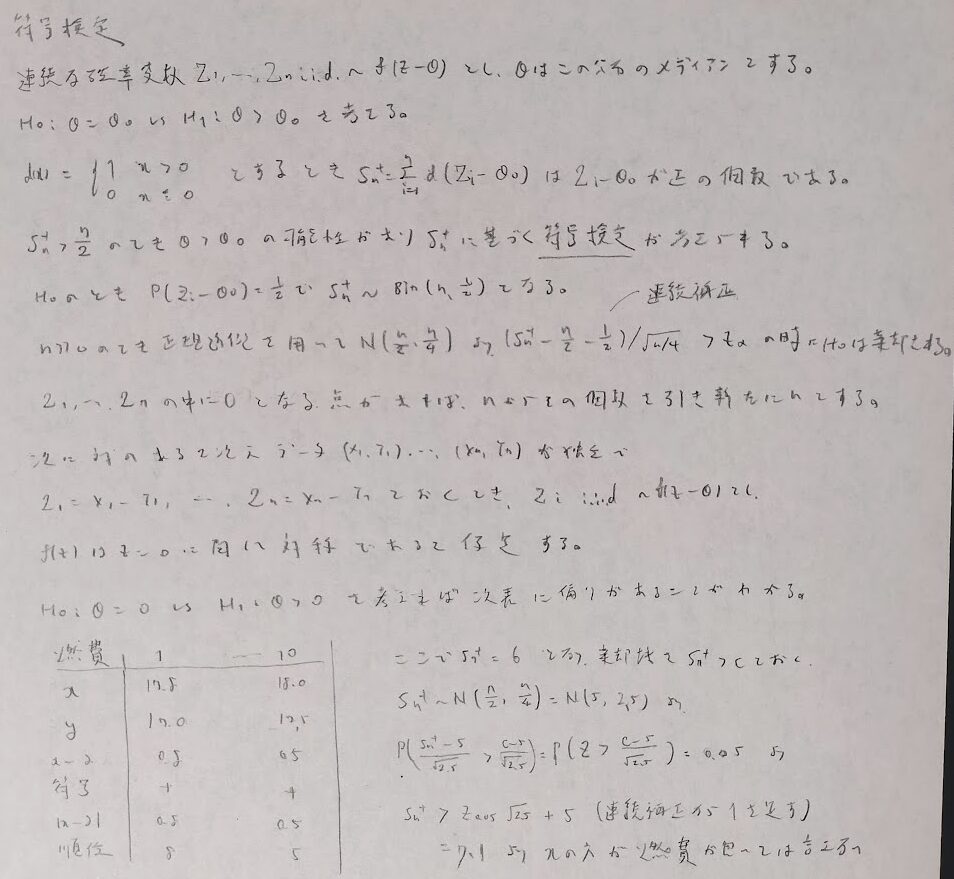 符号検定
連続な確率変数 Z1, …, Zn i.i.d. ~ f(z-θ) とし、θはこの分布のメディアンとする。
H0: θ = θ0 vs H1: θ > θ0 を考える。
d(x) = { 1 x > 0
0 x ≤ 0 とするとき Sn+ = Σ_{i=1}^{n} d(Zi - θ0) は Zi-θ0 が正の個数である。
Sn+ > n/2 のとき θ > θ0 の可能性があり Sn+ に基づく 符号検定 が考えられる。
H0のとき P(Zi-θ0) = 1/2 で Sn+ ~ Bin(n, 1/2) となる。
連続補正
n≫0のとき 正規近似を用いて N(n/2, n/4) より (Sn+ - n/2 - 1/2)/√n/4 > zα の時にH0は棄却される。
Z1, …, Zn の中に0となる点があれば、nからその個数を引き新たにnとする。
次に対のある2次元データ (x1, Y1), …, (xn, Yn) が独立で
Z1 = x1 - Y1, …, Zn = xn - Yn とおくとき、Zi i.i.d ~ f(z-θ) とし
f(z) は z=0 に関して対称であると仮定する。
H0: θ = 0 vs H1: θ > 0 を考えれば次表に偏りがあることがわかる。
燃費 1 … 10
x 17.8 18.0
y 17.0 17.5
x-y 0.8 0.5
符号 + +
|x-y| 0.8 0.5
順位 8 5
ここで Sn+ = 6 となり、棄却域を Sn+ > c とおく。
Sn+ ~ N(n/2, n/4) = N(5, 2.5) より
P((Sn+ - 5)/√2.5 > (c-5)/√2.5) = P(Z > (c-5)/√2.5) = 0.05 より
Sn+ > z0.05 √2.5 + 5 (連続補正から 1 を足す)
= 7.1 より xの方が燃費が